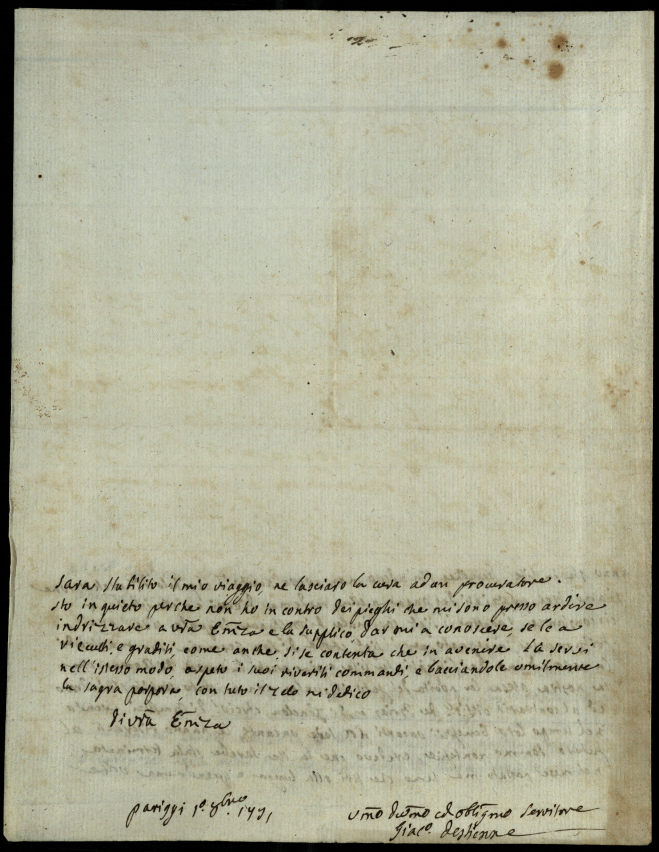 sara stabilito il mio viaggio, ne lasciaro la cura ad un procuratore.
sto inquieto perche non ho in contro dei pieghi che mi sono preso ardire
indrizzare a vra Emza e la supplico, dar mi a conoscere, se le a
riceuti, e graditi, come anche, si se contenta che in avenire La servi
nell'istesso modo, aspeto i suoi riveriti commandi, e bacciandole umilmente
la sagra porpora, con tuto il zelo mi dedico
di vra Emza
pariggi 1o. 8bre. 1771
vmo divmo ed obligmo servitore
Giaco.